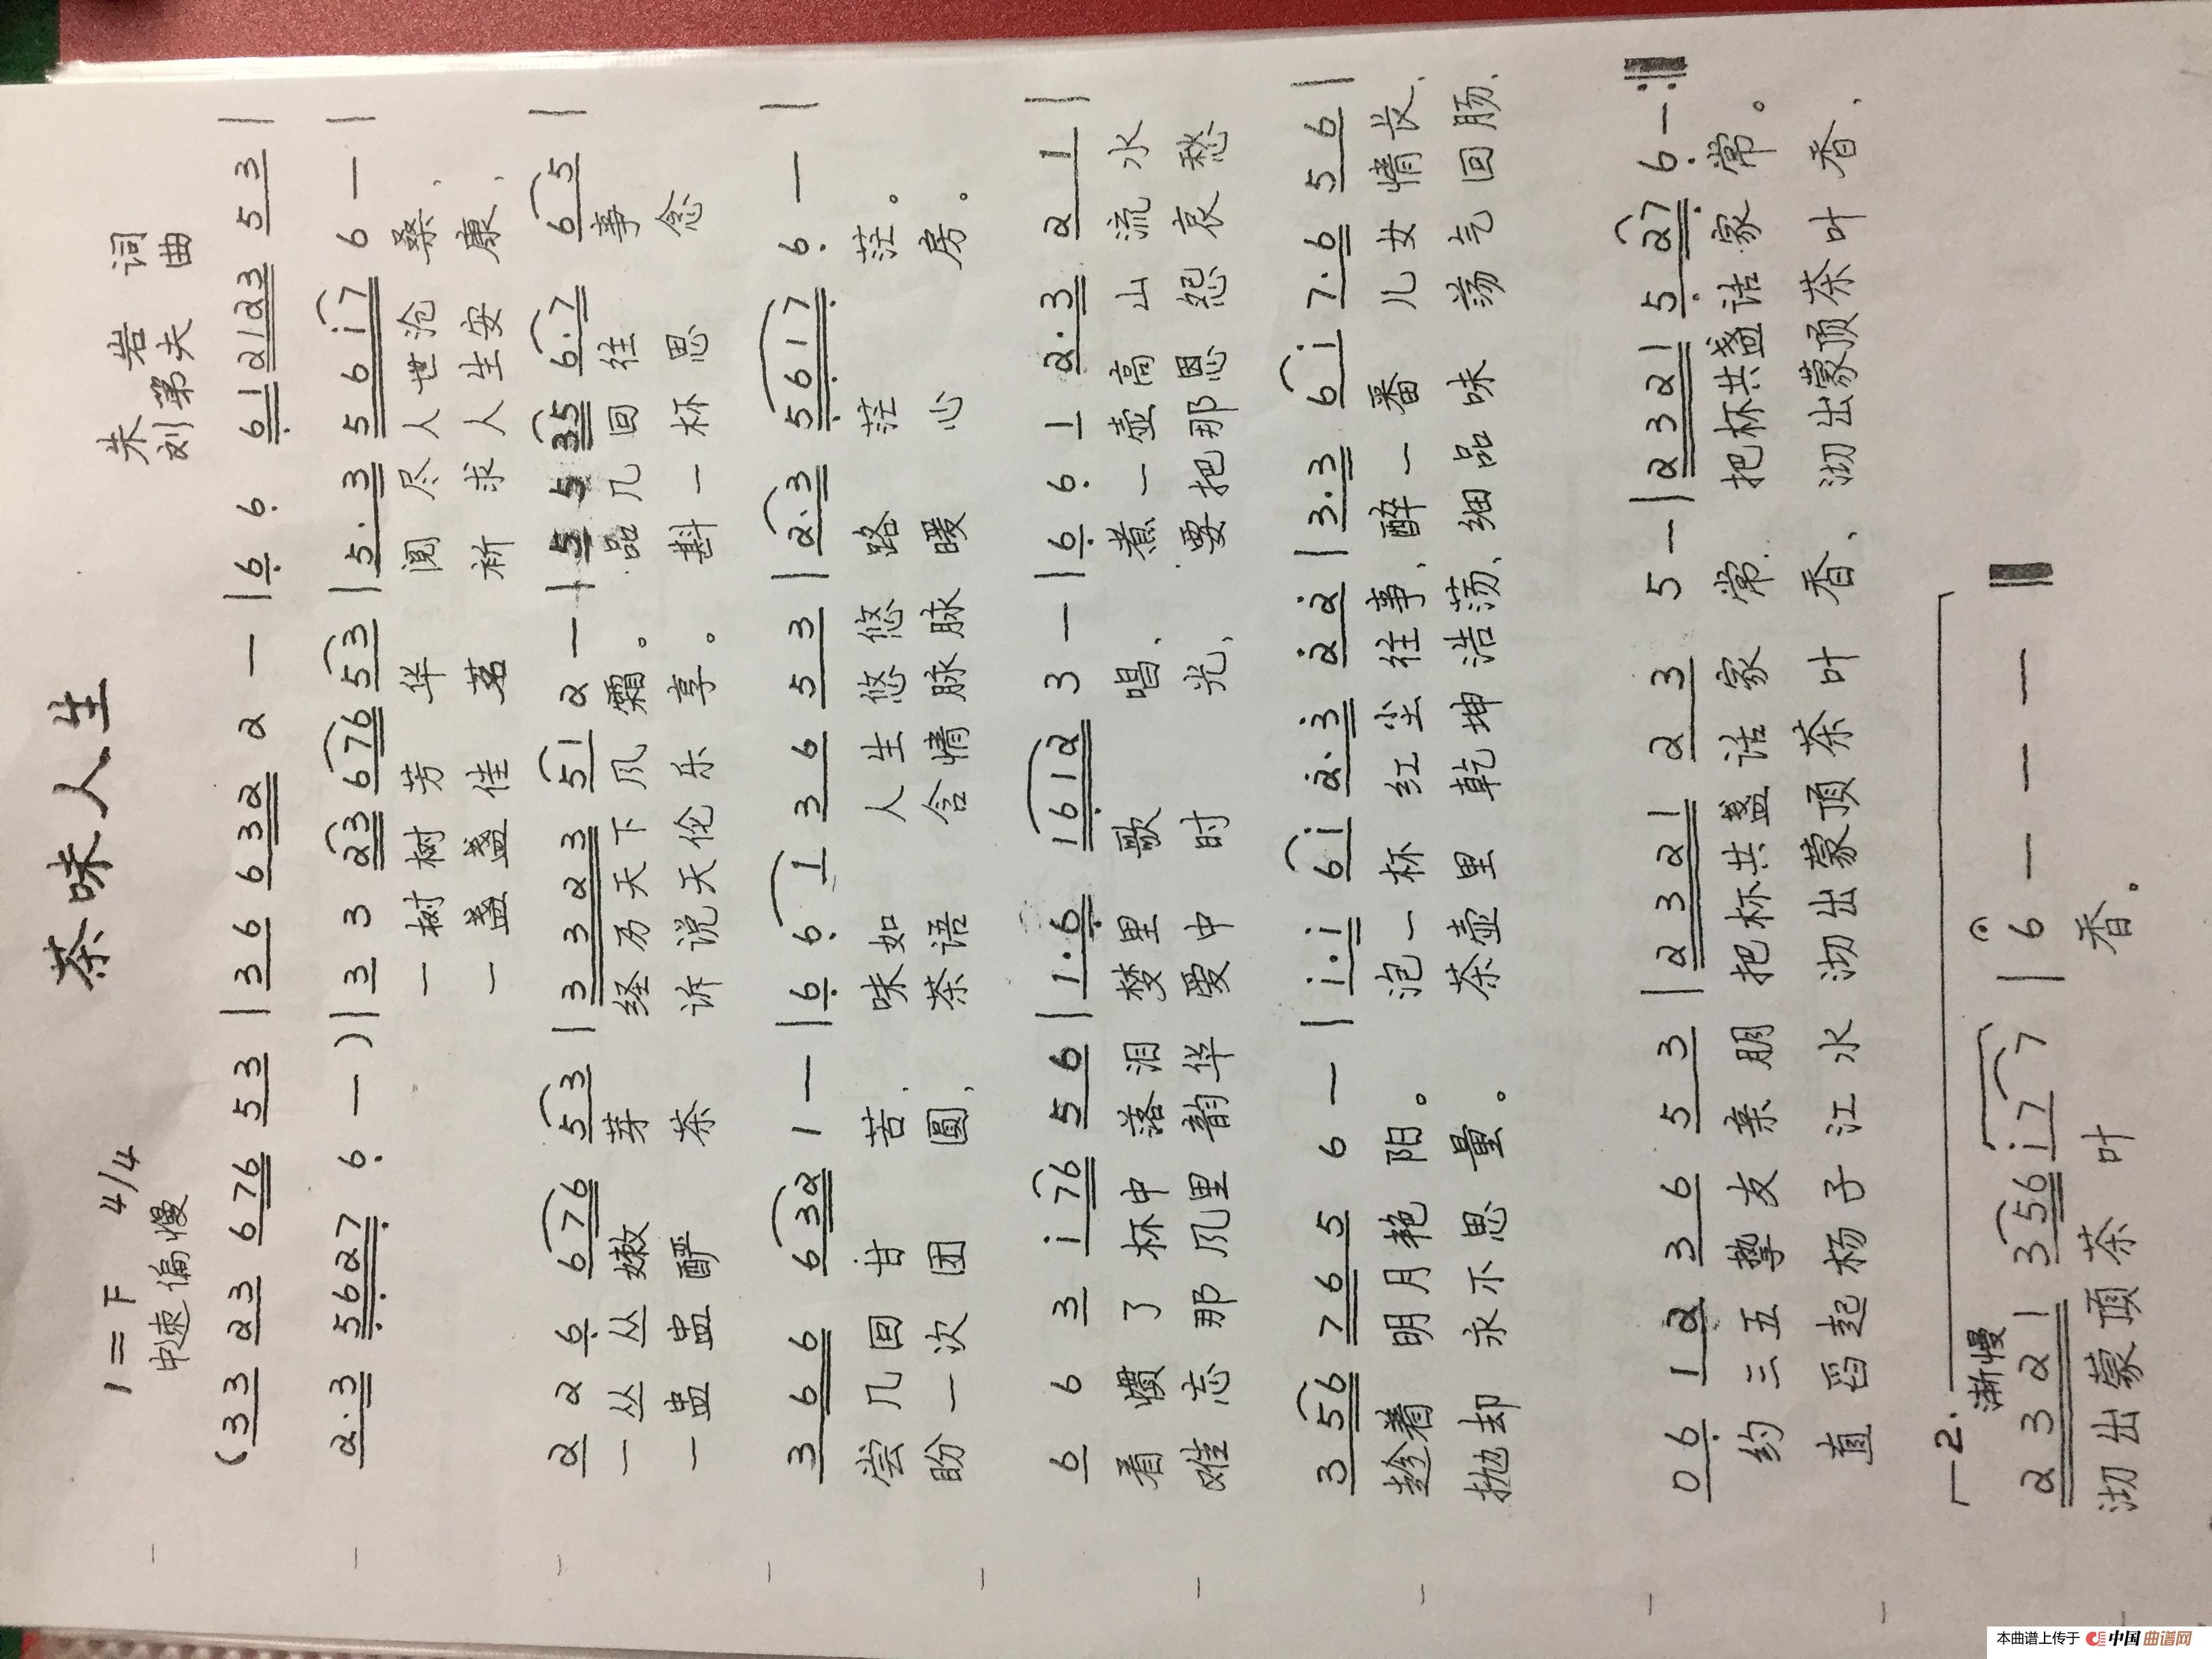 茶味人生
1=F 4/4 朱岩 词
中速偏慢 刘第夫 曲
(33 23 676 53 | 36 632 2 — | 6 6 612123 53 |
2·3 5627 6 — ) | 3 3 23 676 53 | 5·3 56i7 6 — |
一树树芳华 阅尽人世沧桑、
一盏盏佳茗 祈求人生安康、
2 2 6 676 53 | 3323 51 2 — | 5 5 35 6·7 65 |
一丛丛嫩芽 经历天下风霜。 品几回往事
一盅盅酽茶 诉说天伦乐享。 斟一杯思念
3 66 632 1 — | 6 6 1 36 53 | 2·3 5617 6 — |
尝几回甘苦、 味如人生悠悠路茫茫。
盼一次团圆, 茶语含情脉脉暖心房。
6 6 3 i76 56 | 1·6 1612 3 — | 6 6 1 2·3 21 |
看惯了杯中落泪 梦里歌唱、 煮一壶高山流水
难忘那风里韵华 爱中时光, 要把那恩怨哀愁
3 56 76 5 6 — | i·i 6i 2·3 22 | 3·3 6i 7·6 56 |
趁着明月艳阳。 泡一杯红尘往事、醉一番儿女情长、
抛却永不思量。 茶壶里乾坤浩荡、细品味荡气回肠.
06 12 36 53 | 2321 23 5 — | 2321 5 27 6 — :‖
约三五挚友亲朋 把杯共盏话家常. 把杯共盏话家常。
直舀起杨子江水 沏出蒙顶茶叶香、 沏出蒙顶茶叶香、
2. 渐慢
2321 356 i7 7 | 6 — — — ‖
沏出蒙顶茶叶香。
本曲谱上传于 中国曲谱网